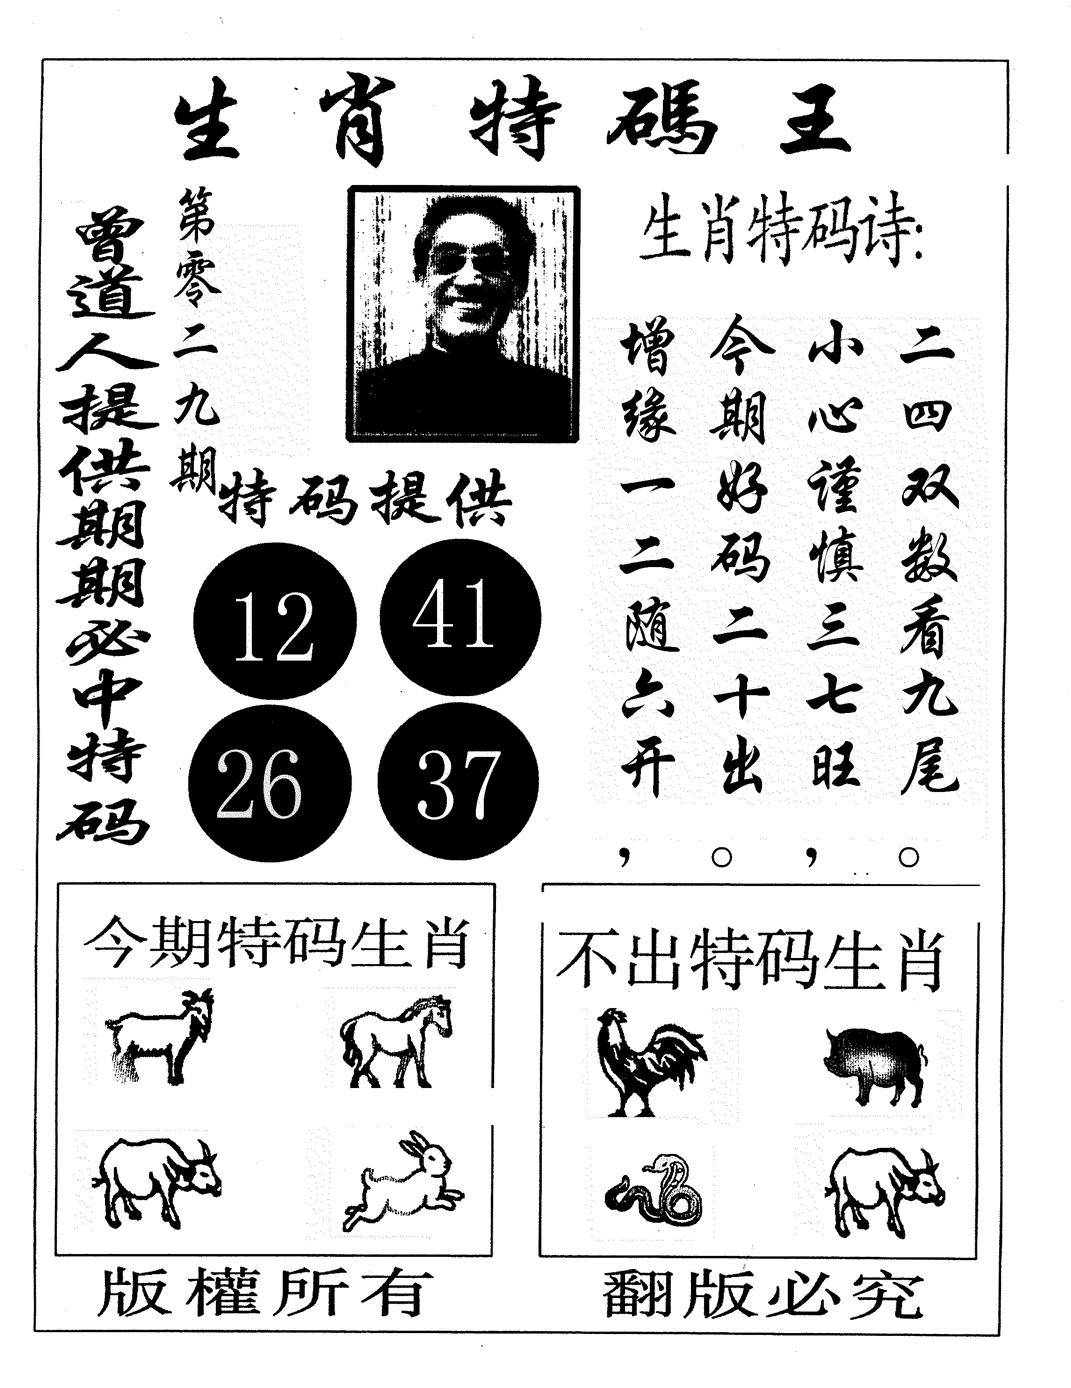 生肖特碼王
曾道人提供期期必中特码
第零二九期
生肖特码诗:
增缘一二随六开，
今期好码二十出。
小心谨慎三七旺，
二四双数看九尾。
特码提供
12 41
26 37
今期特码生肖
不出特码生肖
版權所有
翻版必究